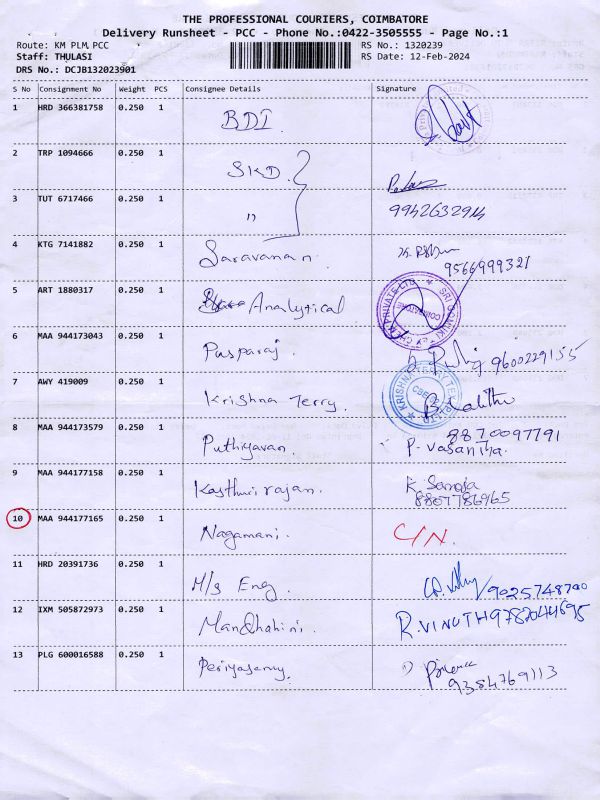 THE PROFESSIONAL COURIERS, COIMBATORE
Delivery Runsheet - PCC - Phone No.:0422-3505555 - Page No.:1
Route: KM PLM, PCC RS No.: 1320239
Staff: THULASI RS Date: 12-Feb-2024
DRS No.: DCJB132023901
S No Consignment No Weight PCS Consignee Details Signature
1 HRD 366381758 0.250 1 BDI
2 TRP 1094666 0.250 1 SKD.
3 TUT 6717466 0.250 1 " 9942632914
4 KTG 7141882 0.250 1 Saravanan. 9566999321
5 ART 1880317 0.250 1 Analytical
6 MAA 944173043 0.250 1 Pusparaj. 9600229155
7 AWY 419009 0.250 1 Krishna Terry. B. Lalitha
KRISHNA TERRY
8 MAA 944173579 0.250 1 Puthiyavan. 8870097791
P. Vasantha.
9 MAA 944177158 0.250 1 Kasthuri rajan. K. Saroja
8807786965
10 MAA 944177165 0.250 1 Nagamani. C/N.
11 HRD 20391736 0.250 1 M/s Eng 9025748700
12 IXM 505872973 0.250 1 Mandhahini. R.VINOTH 9782044695
13 PLG 600016588 0.250 1 Periyasamy.
9384769113